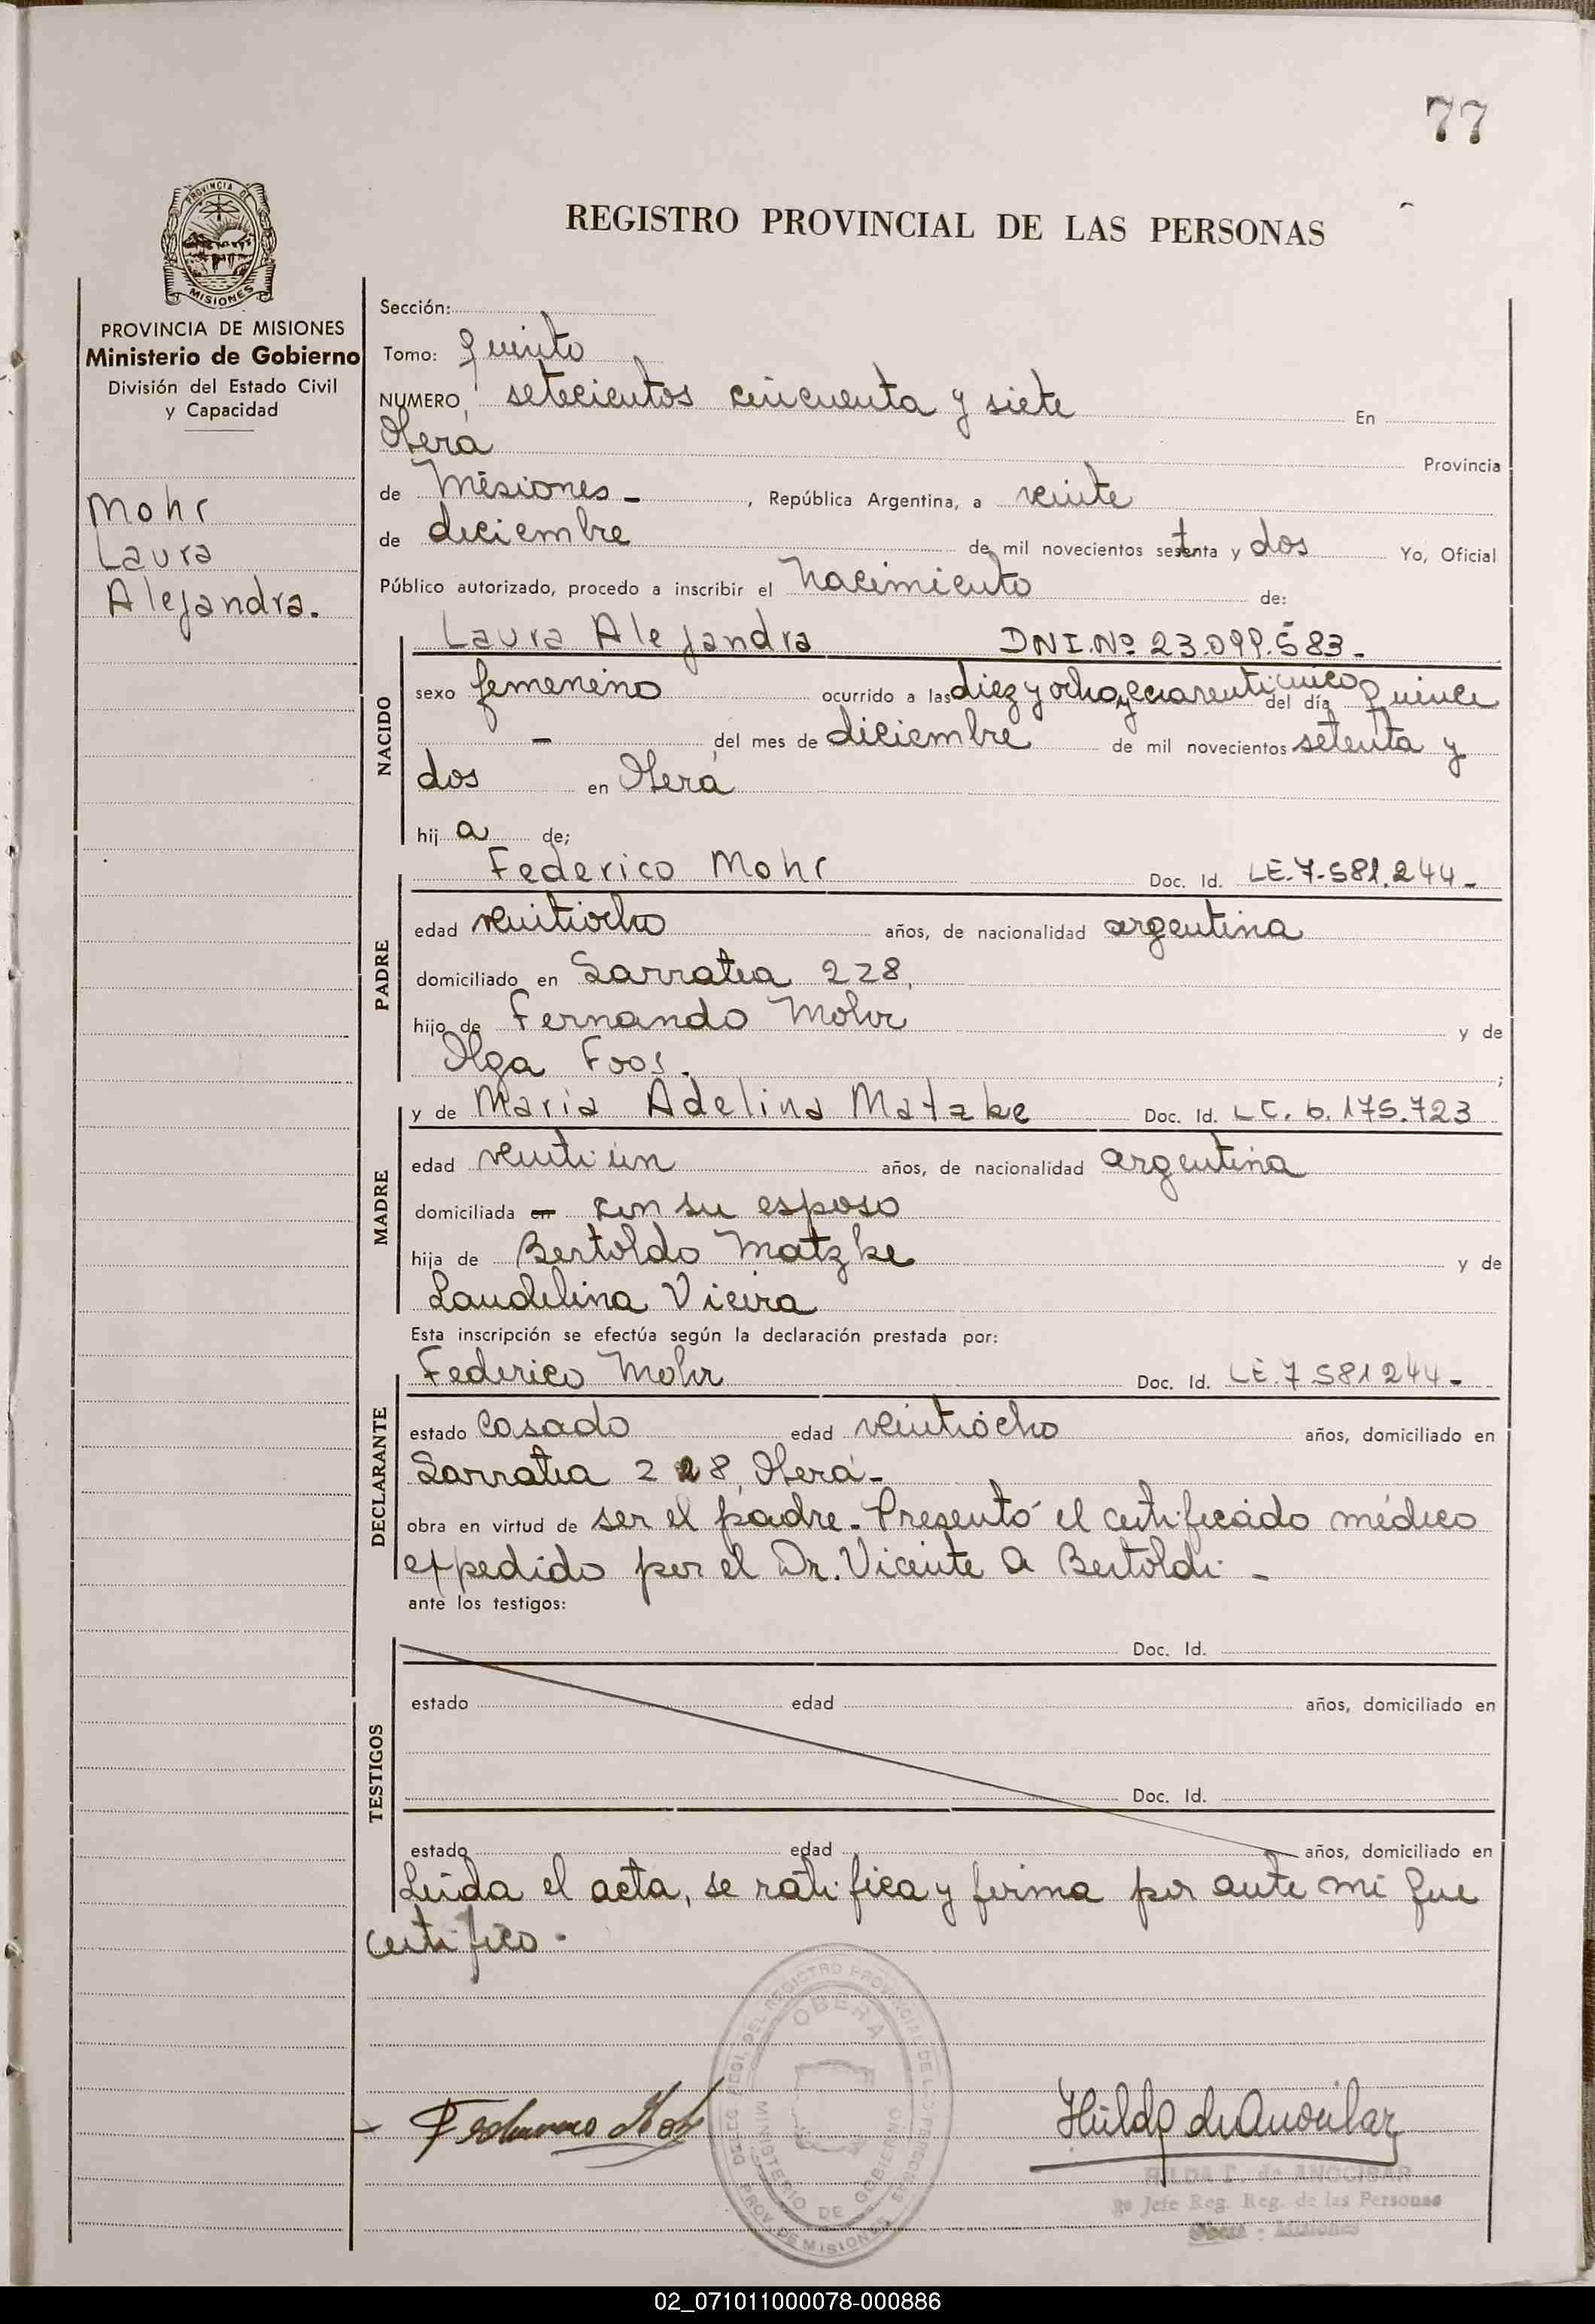 77
PROVINCIA DE
MISIONES
REGISTRO PROVINCIAL DE LAS PERSONAS
PROVINCIA DE MISIONES
Ministerio de Gobierno
División del Estado Civil
y Capacidad
Mohr
Laura
Alejandra.
Sección:
Tomo: quinto
NUMERO, setecientos cincuenta y siete En
Oberá Provincia
de Misiones - , República Argentina, a veinte
de diciembre de mil novecientos setenta y dos Yo, Oficial
Público autorizado, procedo a inscribir el nacimiento de:
Laura Alejandra DNI.Nº 23.099.583-
NACIDO
sexo femenino ocurrido a las diez y ocho y cuarenticinco del día quince
- del mes de diciembre de mil novecientos setenta y
dos en Oberá
hij a de;
Federico Mohr Doc. Id. LE.7.581.244-
PADRE
edad veintiocho años, de nacionalidad argentina
domiciliado en Sarratea 228,
hijo de Fernando Mohr y de
Olga Foos. ;
y de Maria Adelina Matzke Doc. Id. LC. 6.175.723
MADRE
edad veintiún años, de nacionalidad argentina
domiciliada en con su esposo
hija de Bertoldo Matzke y de
Laudelina Vieira
Esta inscripción se efectúa según la declaración prestada por:
Federico Mohr Doc. Id. LE.7 581244-
DECLARANTE
estado casado edad veintiocho años, domiciliado en
Sarratea 228, Oberá-
obra en virtud de ser el padre. Presentó el certificado médico
expedido por el Dr. Vicente A Bertoldi -
ante los testigos:
TESTIGOS
Doc. Id.
estado edad años, domiciliado en
Doc. Id.
estado edad años, domiciliado en
Leída el acta, se ratifica y firma por ante mi que
certifico.
OBERA
MINISTERIO DE GOBIERNO
PROV. DE MISIONES
HILDA F. de ANOCIBAR
2º Jefe Reg. Reg. de las Personas
Oberá - Misiones
02_071011000078-000886